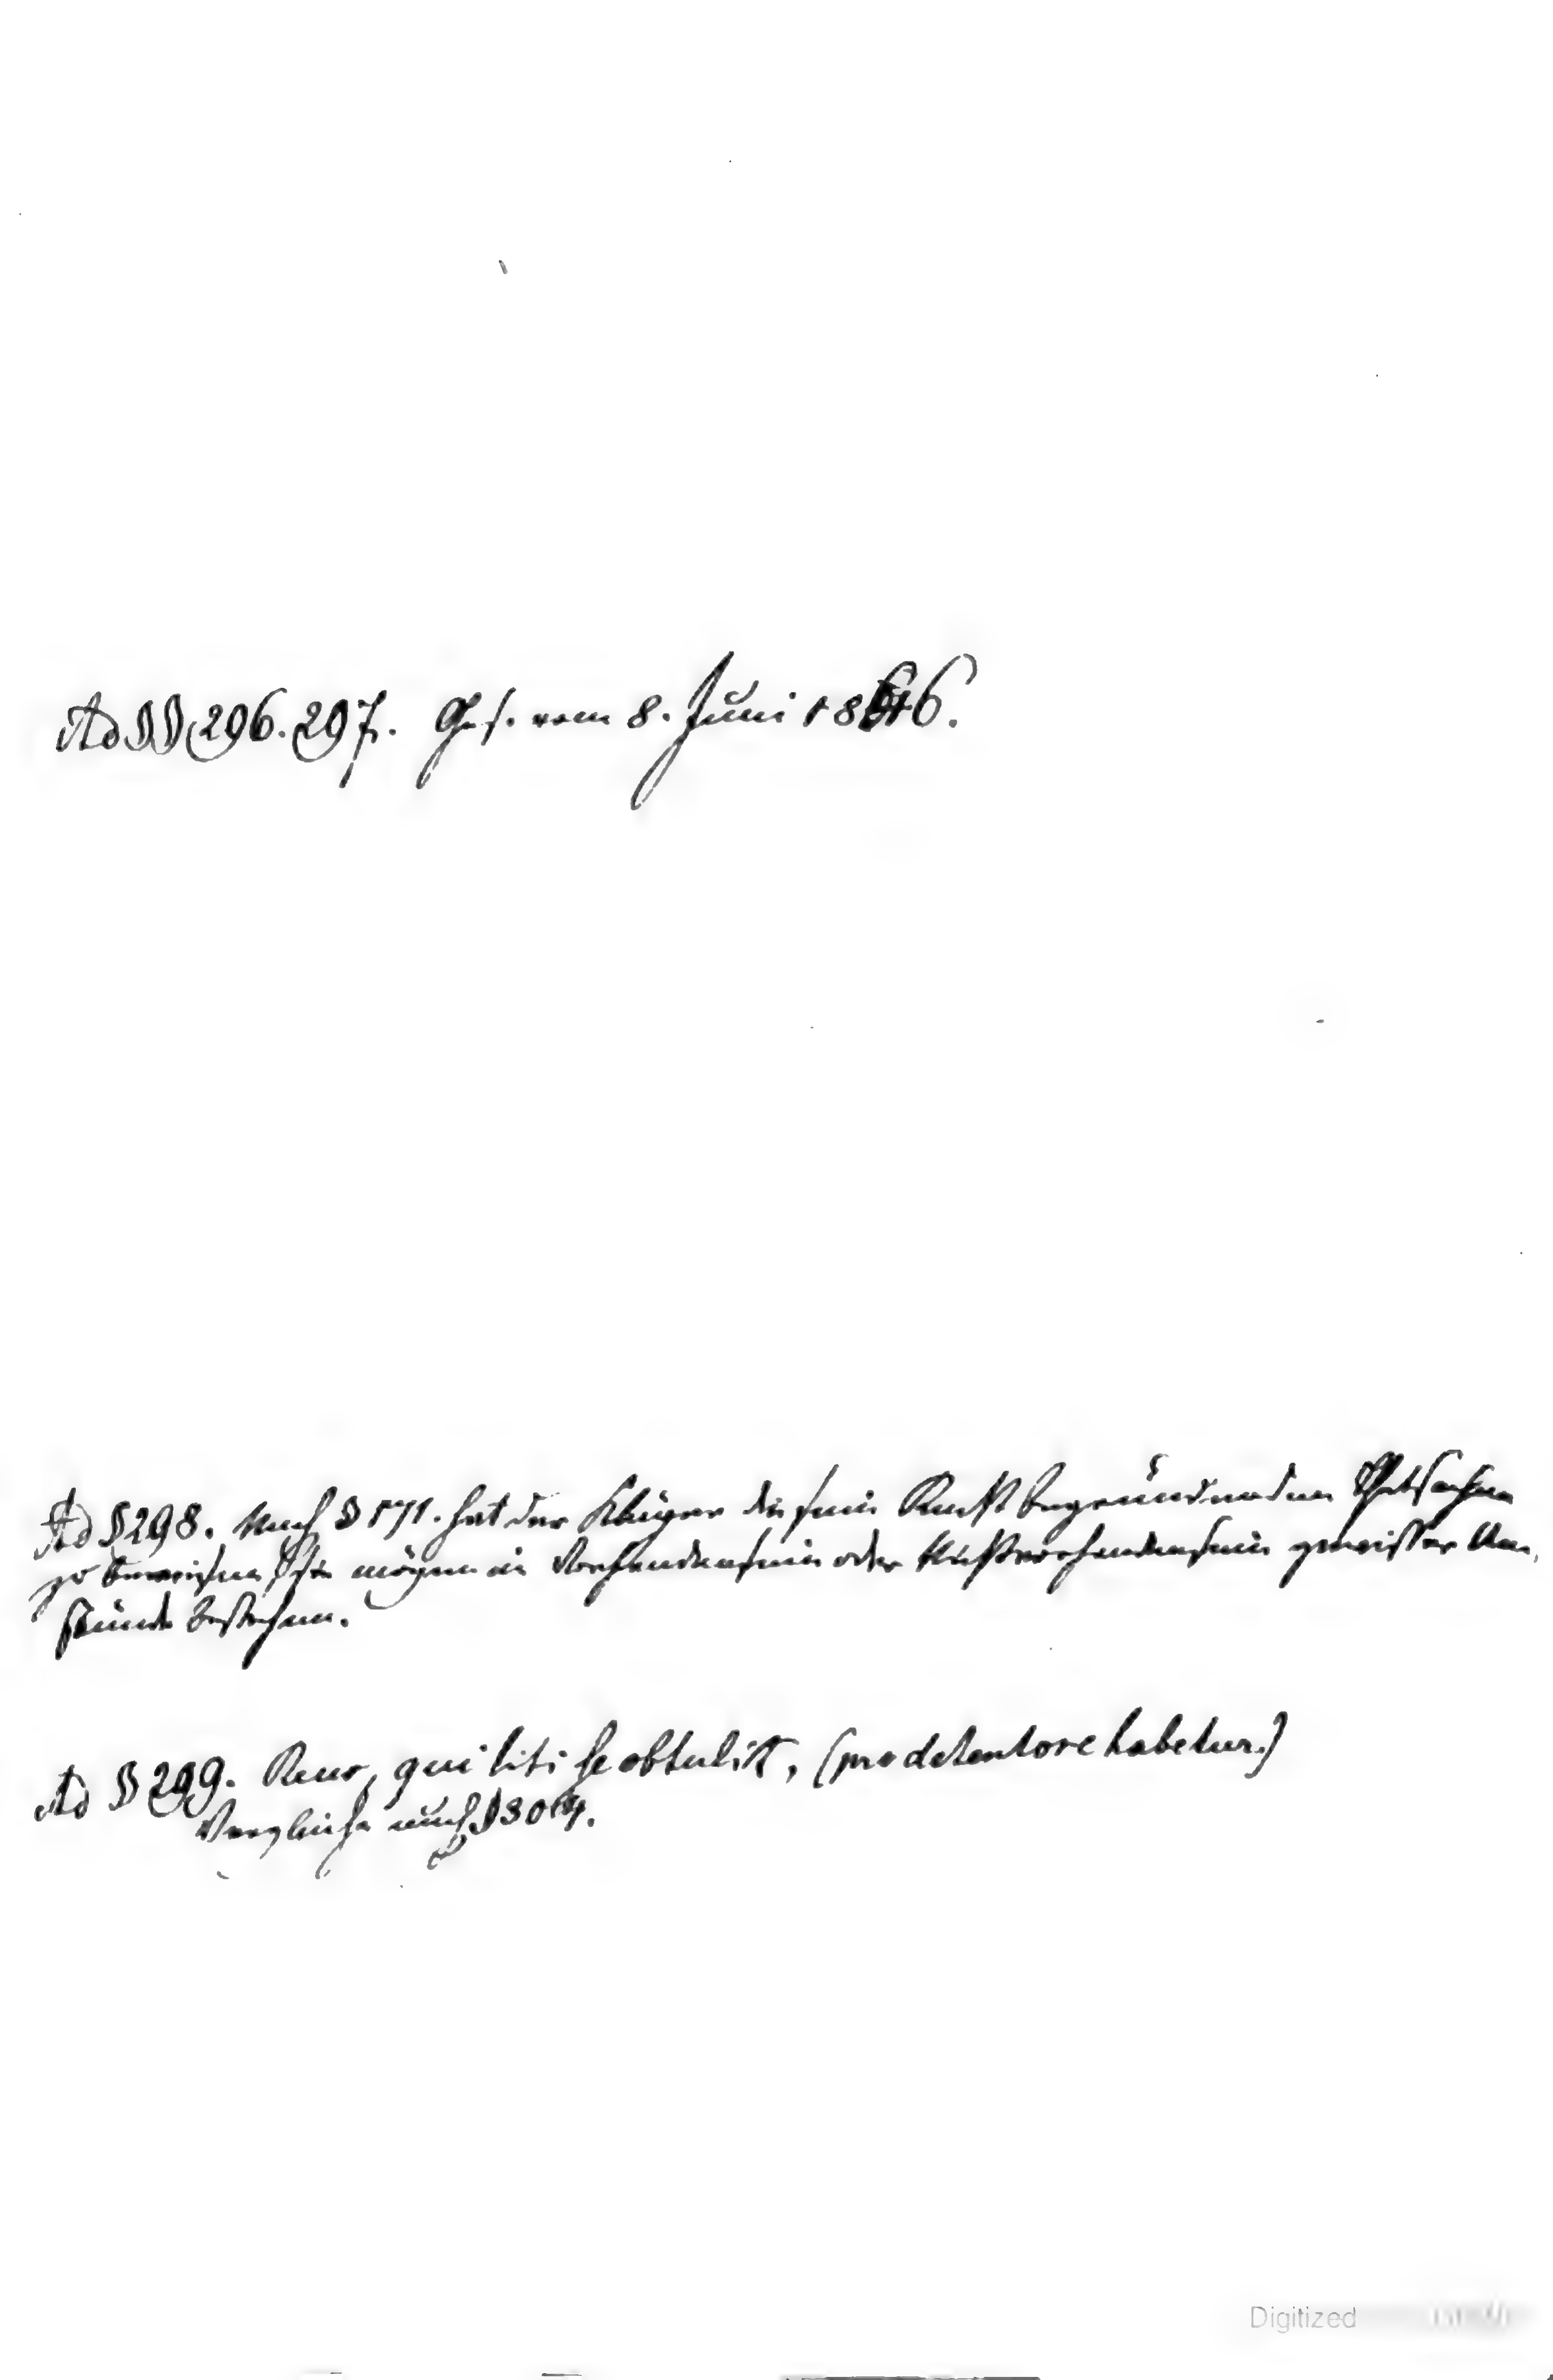 Ad §§ 296. 297. Ges. vom 8. Juni 1846.
Ad § 298. Nach § 171. hat der Kläger die sein Recht begründenden Thatsachen
zu beweisen, sie mögen in Vorhandensein oder Nichtvorhandensein gewisser Um-
stände bestehen.
Ad § 299. Reus, qui liti se obtulit, (pro detentore habetur.)
Vergleiche auch § 304.
Digitized